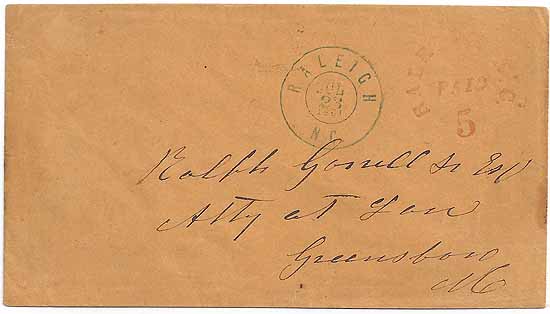 RALEIGH
JUL
23
N.C.
PAID
5
Ralph Gorrell Esq
Atty at Law
Greensboro
NC